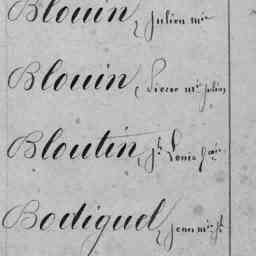 Blouin, Julien mie
Blouin, Pierre mie Julien
Bloutin, jh Louis
Bodiguel, jean mie